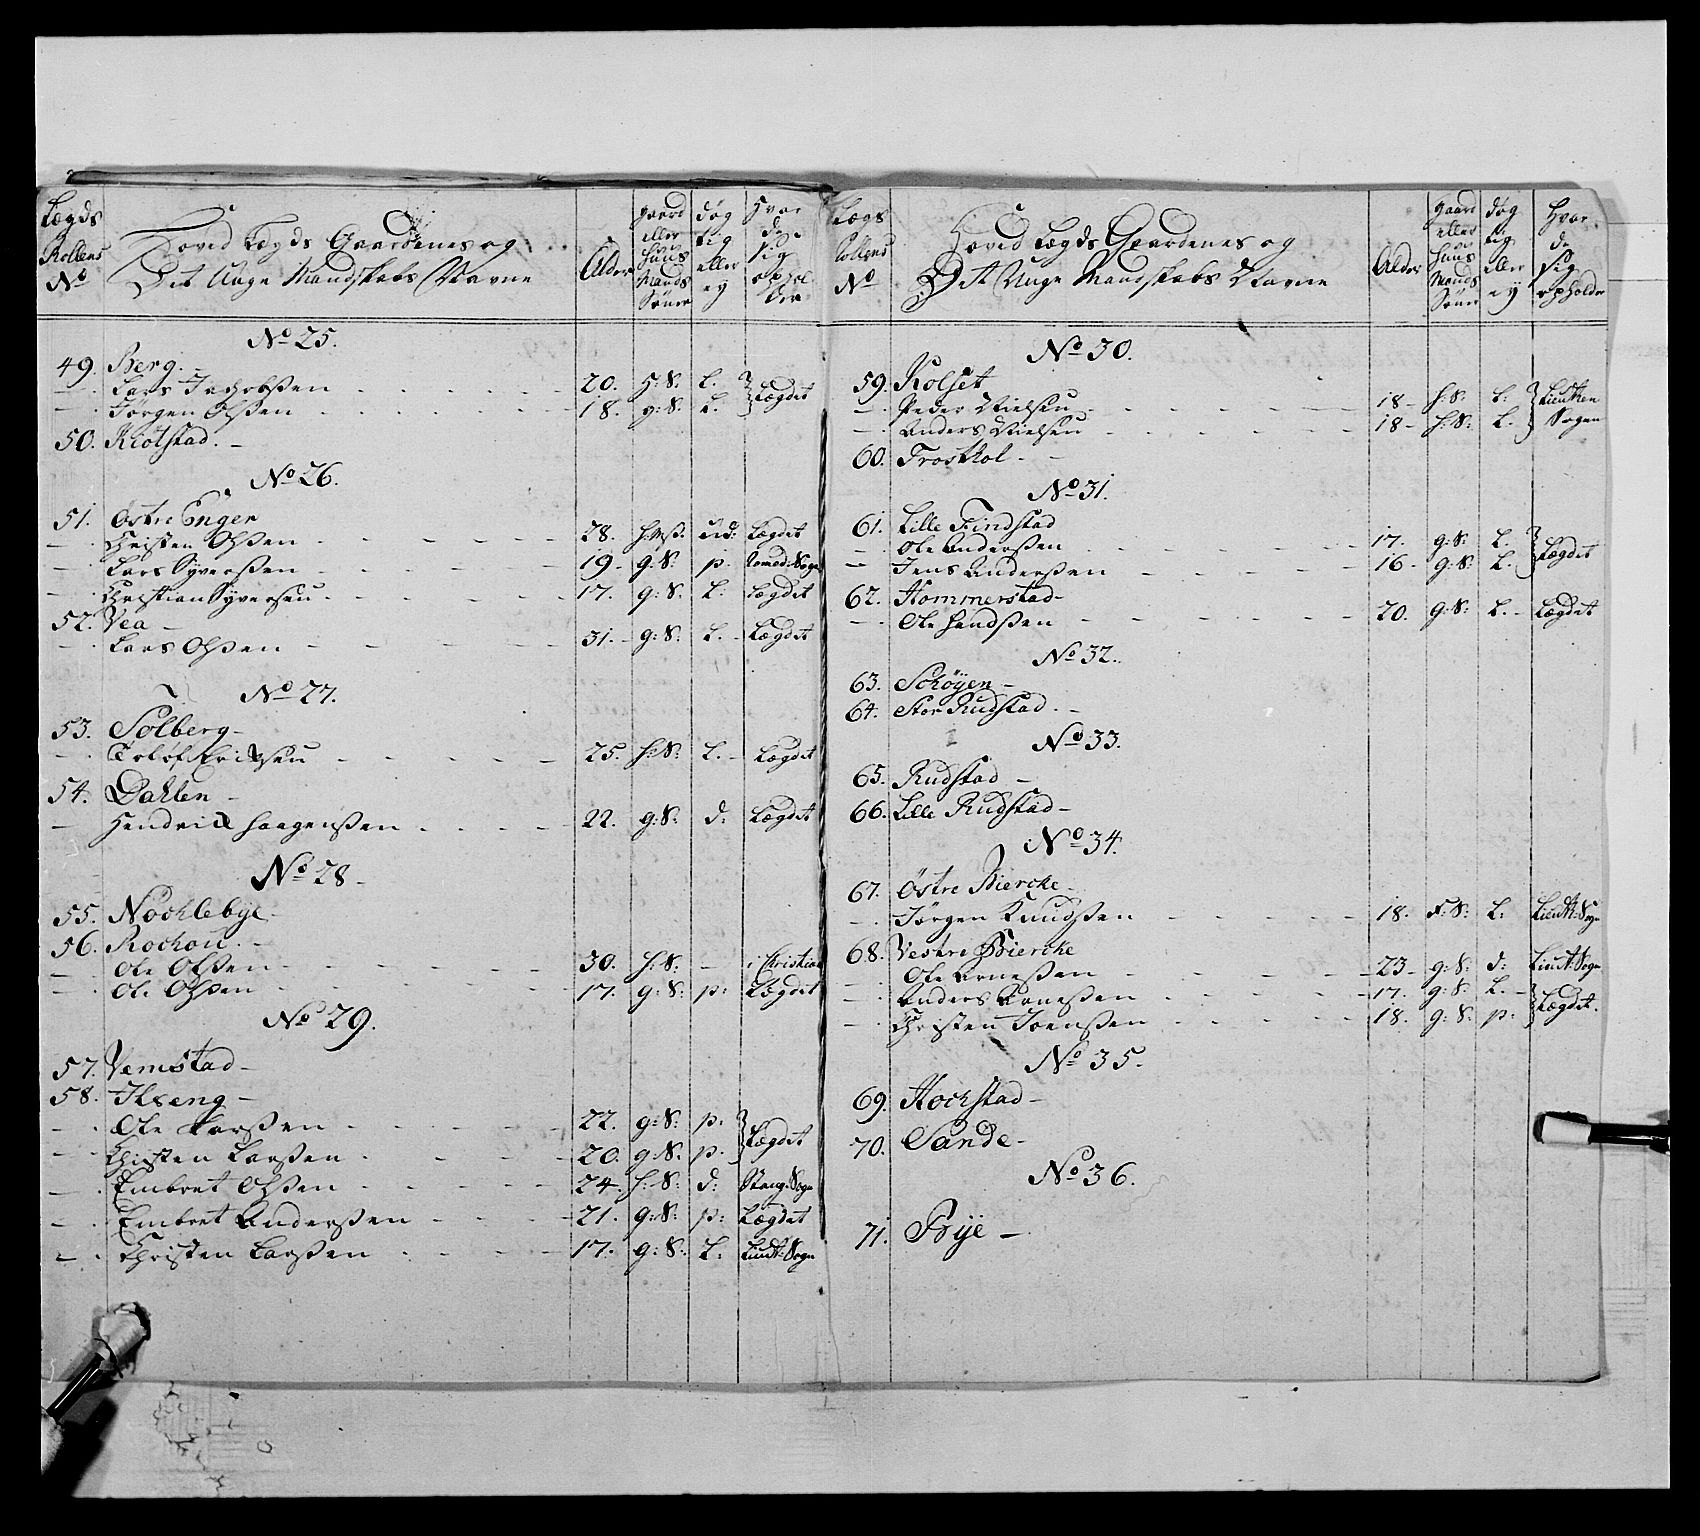 Lægds Rollens No
Hoved Lægds Gaardenes og
Det Unge Mandskabs Navne
Alder
gaard eller Huus Mands Sønner
døg tig eller ey
Hvor de sig ophol der
No 25.
49. Berg.
Lars Jachobsen 20. H: S. L. Lægdet
Jørgen Olsen 18. g: S. L.
50. Kiølstad.
No 26.
51. Østre Enger
Christen Olsen 28. ud: Lægdet
Lars Syversen 19 g: S. p. Sogn
Christian Syversen 17. g: S. L: Lægdet
52. Vea
Lars Olsen 31. g: S. L. Lægdet
No 27.
53. Solberg
Eriksen 25. h: S. L. Lægdet
54. Dahlen
Hendrich Haagensen 22. g: S. d: Lægdet
No 28
55. Nochlebye
56. Rochou.
Ole Olsen 30. h: S. i Christian
Ole Olsen 17. g: S. p: Lægdet
No 29.
57. Vemstad
58. Ilseng
Ole Larsen 22. g: S. p: Lægdet
Christen Larsen 20. g: S. p.
Embret Olsen 24. h: S. d: Stang: Sogn
Embret Andersen 21. g: S. p: Lægdet
Christen Larsen 17. g: S. L. Sogn
Lægs Rollens No
Hoved Lægds Gaardenes og
Det Unge Mandskabs Navne
Alder
gaard eller Huus Mands Sønner
døg tig eller ey
Hvor de sig opholder
No 30.
59. Kolset
Peder Nielsen 18 h: S. L:
Anders Nielsen 18 h: S. L. Sogn
60. Froshol
No 31.
61. Lille Findstad
Ole Andersen 17. g: S. L. Lægdet
Jens Andersen 16 g: S. L.
62. Hommerstad
Ole Hansen 20. g: S. L. Lægdet
No 32.
63. Schøyen
64. Stor Rudstad.
No 33.
65. Rudstad
66. Lille Rudstad
No 34.
67. Østre Biercke
Jørgen Knudsen 18. S: L: Sogn
68. Vestre Biercke
Ole Arnesen 23 g: S. d: Sogn
Anders Arnesen 17. g: S. L. Lægdet.
Christen Joensen 18. g: S. p:
No 35.
69. Hochstad
70. Sande
No 36.
71. Frye